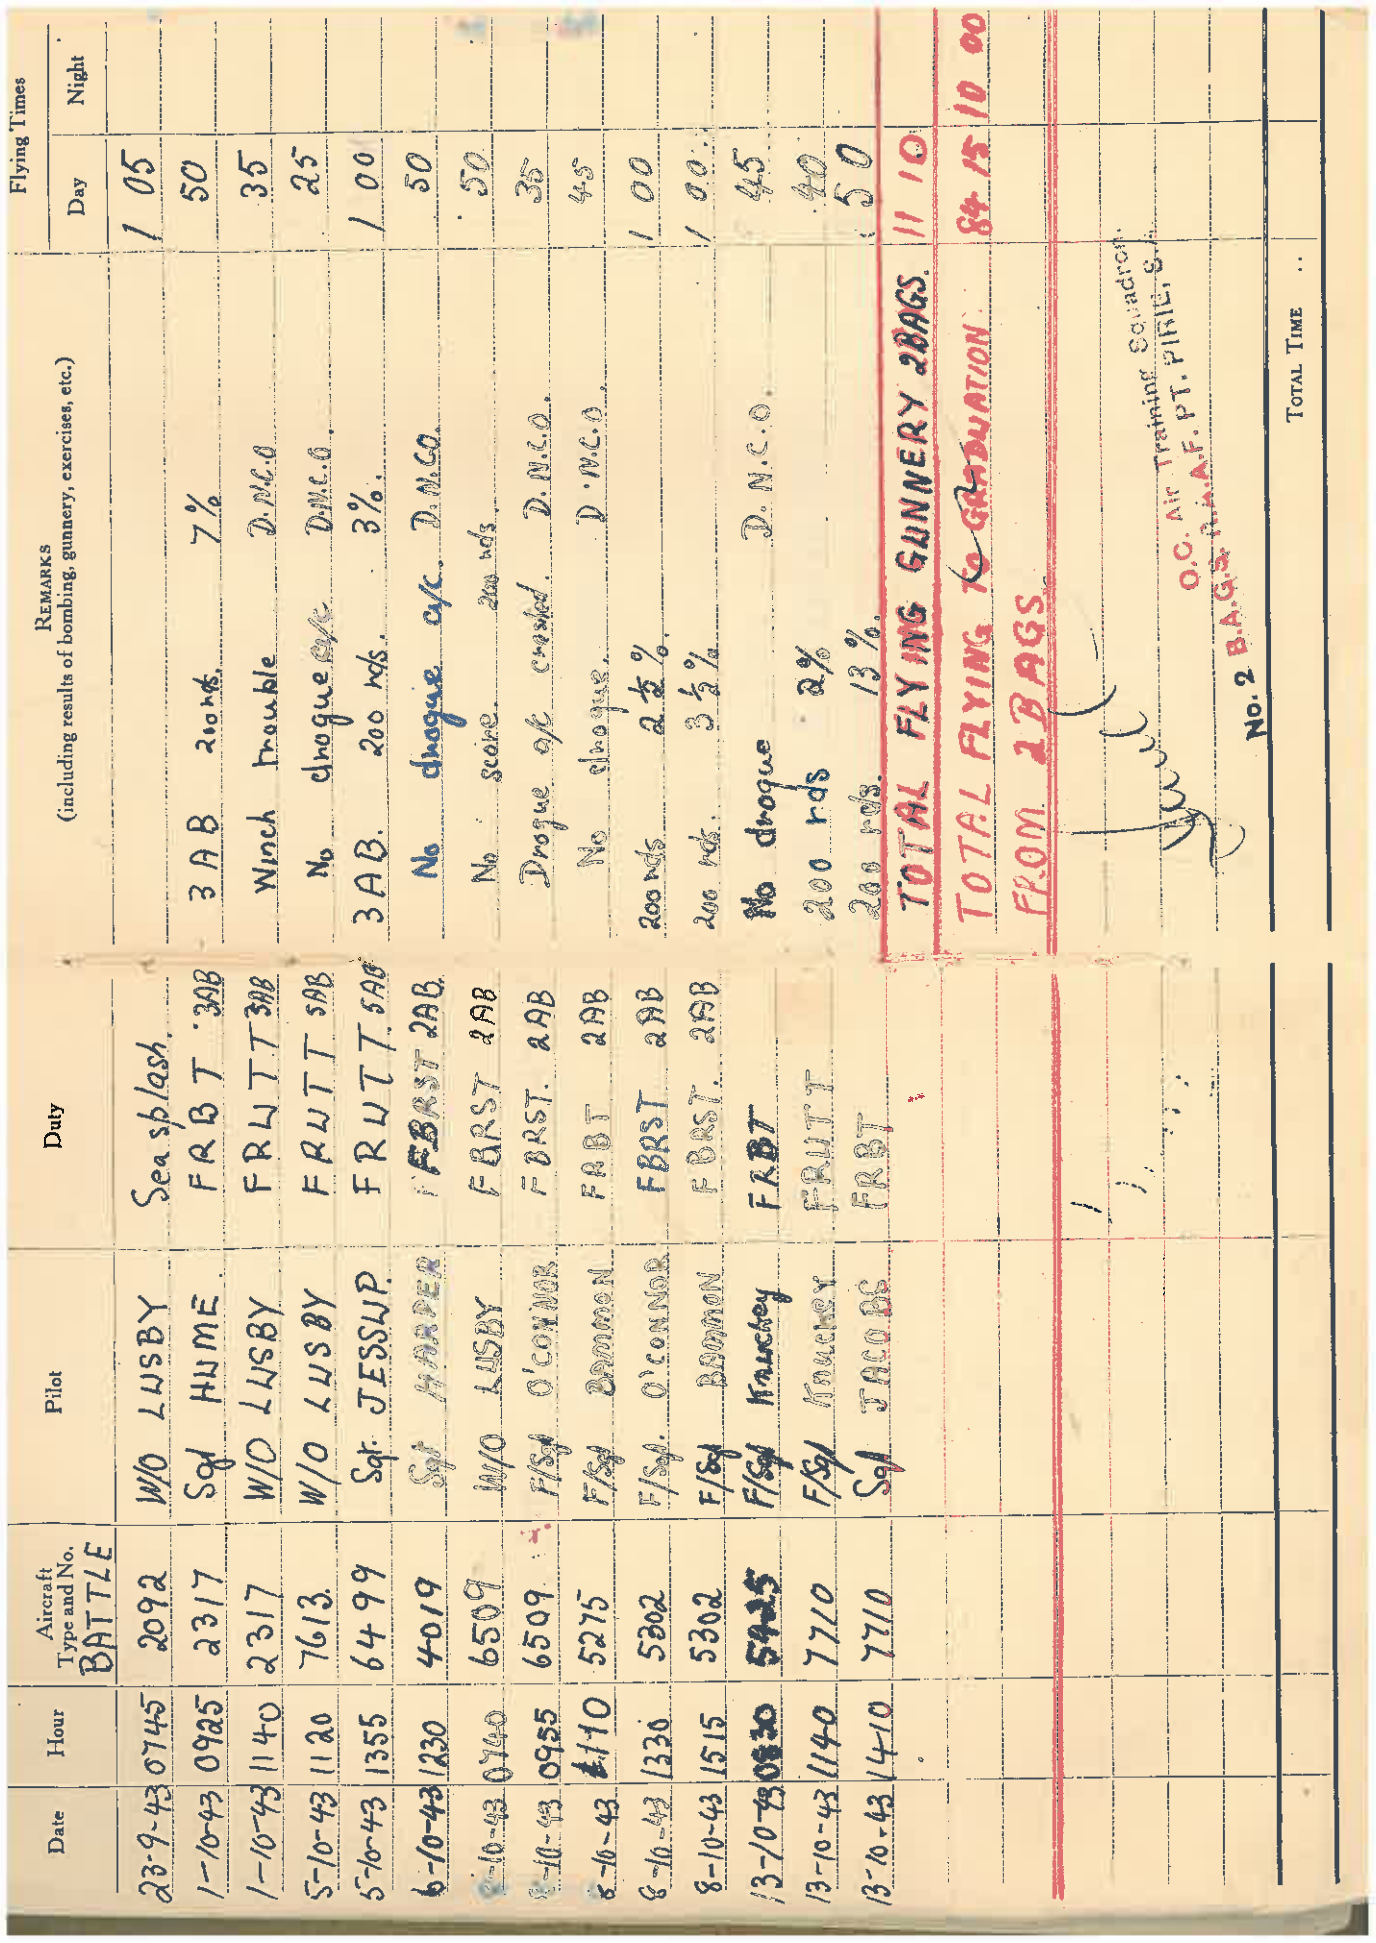 Date Hour Aircraft Type and No. Pilot Duty REMARKS (including results of bombing, gunnery, exercises, etc.) Flying Times
Day Night
BATTLE
23-9-43 0745 2092 W/O LUSBY Sea splash. 1 05
1-10-43 0925 2317 Sgt HUME. FRBT 3AB 3AB 200 rds. 7% 50
1-10-43 1140 2317 W/O LUSBY FRUTT 3AB Winch trouble D.N.C.O 35
5-10-43 1120 7613. W/O LUSBY FRUTT 5AB No drogue a/c D.N.C.O. 25
5-10-43 1355 6499 Sgt. JESSUP. FRUTT 5AB 3AB. 200 rds. 3%. 1 00
6-10-43 1230 4019 Sgt HARPER FBRST 2AB. No drogue a/c. D.N.CO. 50
8-10-43 0740 6509 W/O LUSBY FBRST 2AB No score. 200 rds. 50
8-10-43 0955 6509 F/Sgt O'CONNOR FBRST. 2AB Drogue a/c crashed. D.N.C.O. 35
8-10-43 1110 5275 F/Sgt BAMMON FRBT 2AB No drogue. D.N.C.O. 45
8-10-43 1330 5302 F/Sgt. O'CONNOR FBRST 2AB 200 rds 2½%. 1 00
8-10-43 1515 5302 F/Sgt BAMMON FBRST. 2AB 200 rds. 3½% 1 00
13-10-43 0830 F/Sgt Knuckey FRBT No drogue D.N.C.O. 45
13-10-43 1140 7710 F/Sgt Knuckey FRUTT 200 rds 2% 40
13-10-43 1410 7710 Sgt JACOBS FRBT 200 rds. 13%. 50
TOTAL FLYING GUNNERY 2BAGS. 11 10
TOTAL FLYING TO GRADUATION 84 15 10 00
FROM 2BAGS
O.C. Air Training Squadron.
No. 2 B.A.G.S. R.A.A.F. PT. PIRIE, S.A.
TOTAL TIME ..